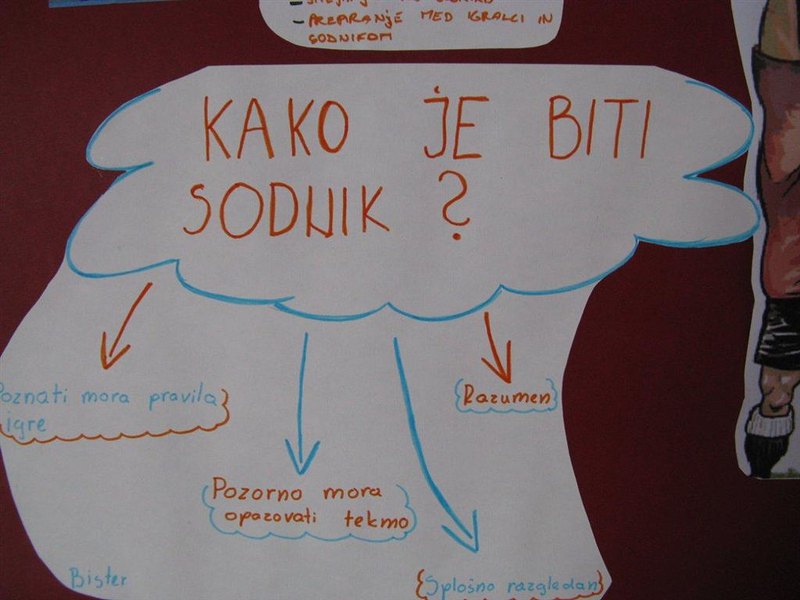 - PREPIRANJE MED IGRALCI IN
SODNIKOM
KAKO JE BITI
SODNIK ?
Poznati mora pravila
igre
Razumen
Pozorno mora
opazovati tekmo
Bister
Splošno razgledan